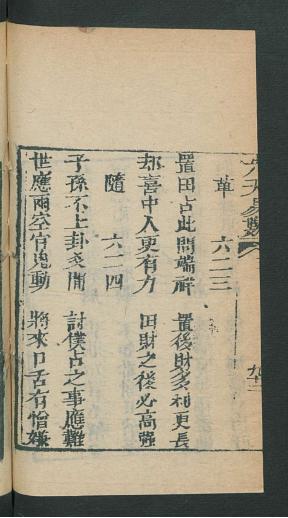 革　六二三
置田占此問端祥　置後財多利更長
却喜中人更有力　田財之後必高強
隨　六二四
子孫不上卦爻開　討僕占之事應難
世應兩空官鬼動　將來口舌有憎嫌